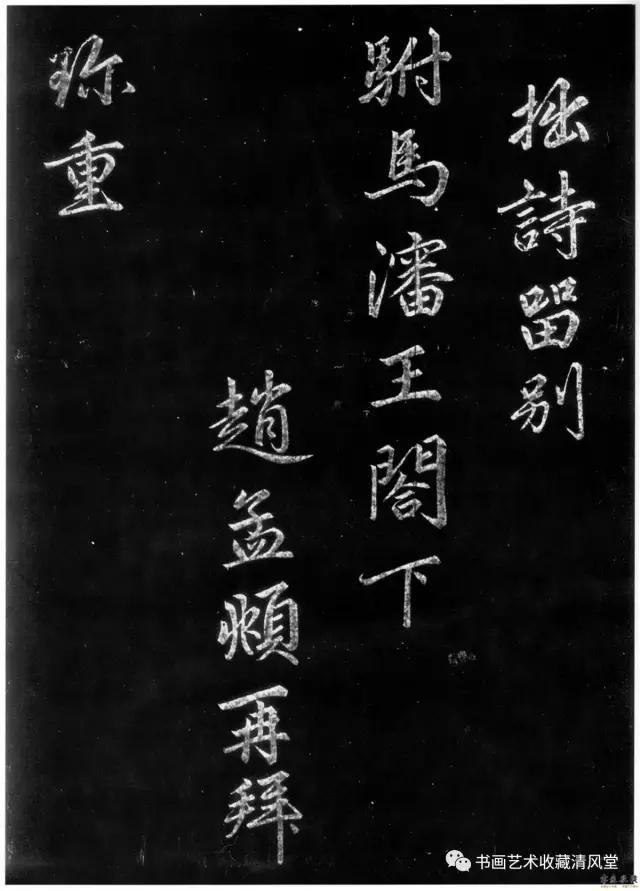 拙詩留别
駙馬瀋王閤下
趙孟頫再拜
珎重
书画艺术收藏清风堂